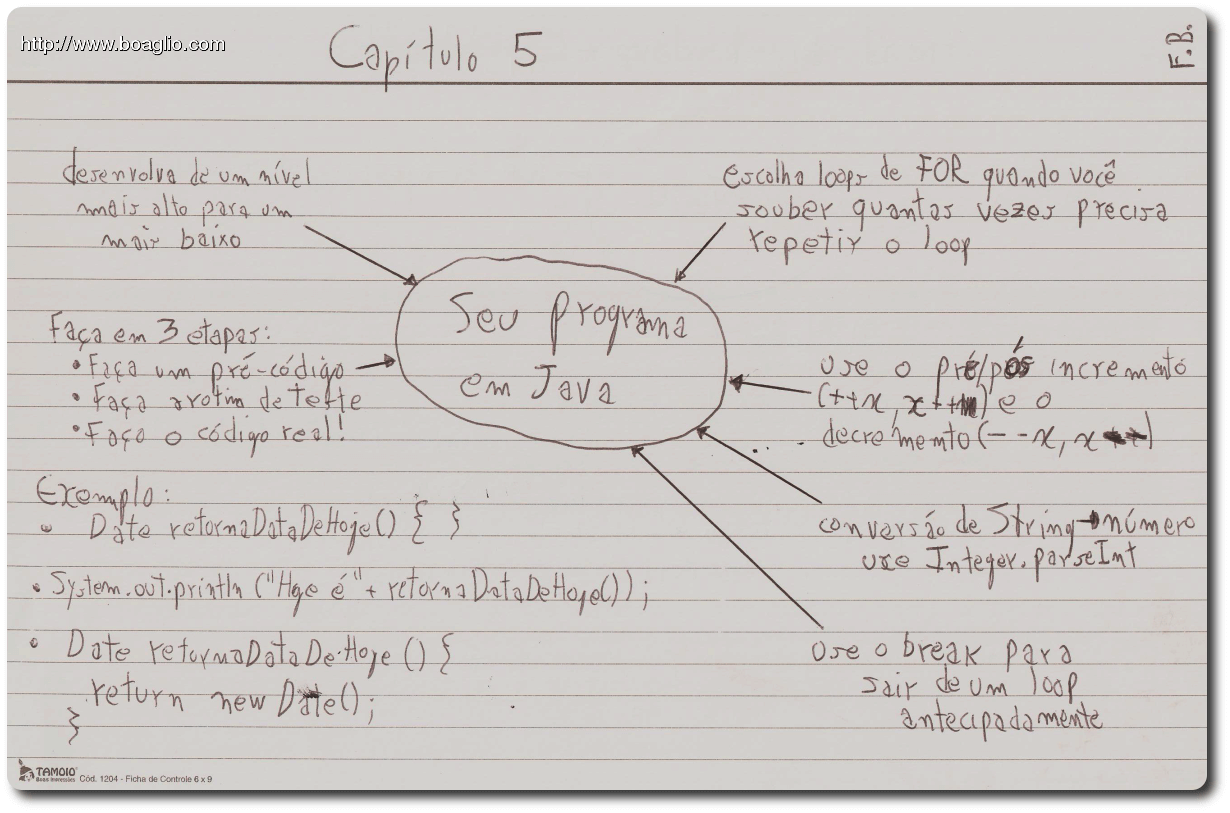 http://www.boaglio.com
Capítulo 5
F.B.
desenvolva de um nível
mais alto para um
mais baixo
escolha loops de FOR quando você
souber quantas vezes precisa
repetir o loop
Seu programa
em Java
Faça em 3 etapas:
• Faça um pré-código
• Faça a rotina de teste
• Faço o código real!
use o pré/pós incremento
(++x, x++) e o
decremento (--x, x
conversão de String → número
use Integer.parseInt
Use o break para
sair de um loop
antecipadamente
Exemplo:
• Date retornaDataDeHoje() { }
• System.out.println ("Hoje é" + retornaDataDeHoje());
• Date retornaDataDeHoje () {
return new Date();
}
TAMOIO
Cód. 1204 - Ficha de Controle 6 x 9